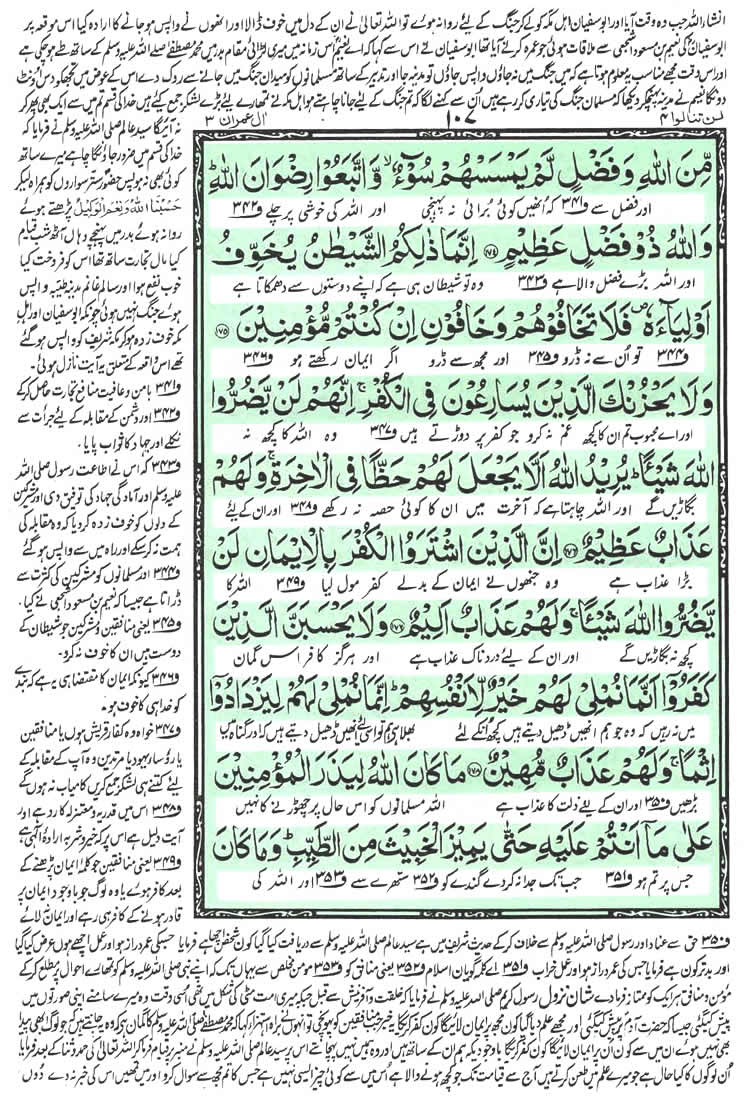 انشاء اللہ جب وہ وقت آیا اور ابوسفیان اہل مکہ کو لے کر جنگ کے لئے روانہ ہوئے تو اللہ تعالیٰ نے ان کے دل میں خوف ڈالا اور انھوں نے واپس ہو جانے کا ارادہ کیا اس موقعہ پر
ابوسفیان کی نعیم بن مسعود اشجعی سے ملاقات ہوئی جو عمرہ کرنے آیا تھا ابوسفیان نے اس سے کہا کہ اے نعیم اس زمانہ میں میری لڑائی مقام بدر میں محمد مصطفےٰ صلے اللہ علیہ وسلم کے ساتھ طے ہو چکی ہے
اور اس وقت مجھے مناسب یہ معلوم ہوتا ہے کہ میں جنگ میں نہ جاؤں واپس جاؤں تو مدینہ جا اور تدبیر کے ساتھ مسلمانوں کو میدان جنگ میں جانے سے روک دے اس کے عوض میں تجھ کو دس اونٹ
دونگا نعیم نے مدینہ پہنچ کر دیکھا کہ مسلمان جنگ کی تیاری کر رہے ہیں ان سے کہنے لگا کہ تم جنگ کے لئے جانا چاہتے ہو اہل مکہ نے تمھارے لئے بڑے لشکر جمع کیے ہیں خدا کی قسم تم میں سے ایک بھی پھر کر
لن تنالوا ۴
۱۰۷
ال عمرٰن ۳
مِّنَ اللّٰهِ وَفَضْلٍ لَّمْ يَمْسَسْهُمْ سُوْٓءٌ ۙ وَّاتَّبَعُوْا رِضْوَانَ اللّٰهِ ؕ
اور فضل سے ف۳۴۱ کہ انھیں کوئی برائی نہ پہنچی اور اللہ کی خوشی پر چلے ف۳۴۲
وَاللّٰهُ ذُوْ فَضْلٍ عَظِيْمٍ ۱۷۴ اِنَّمَا ذٰلِكُمُ الشَّيْطٰنُ يُخَوِّفُ
اور اللہ بڑے فضل والا ہے ف۳۴۳ وہ تو شیطان ہی ہے کہ اپنے دوستوں سے دھمکاتا ہے
اَوْلِيَآءَهٗ ۪ فَلَا تَخَافُوْهُمْ وَخَافُوْنِ اِنْ كُنْتُمْ مُّؤْمِنِيْنَ ۱۷۵
ف۳۴۴ تو اُن سے نہ ڈرو ف۳۴۵ اور مجھ سے ڈرو اگر ایمان رکھتے ہو ف۳۴۶
وَلَا يَحْزُنْكَ الَّذِيْنَ يُسَارِعُوْنَ فِي الْكُفْرِ ۚ اِنَّهُمْ لَنْ يَّضُرُّوا
اور اے محبوب تم ان کا کچھ غم نہ کرو جو کفر پر دوڑتے ہیں ف۳۴۷ وہ اللہ کا کچھ نہ
اللّٰهَ شَيْـًٔا ؕ يُرِيْدُ اللّٰهُ اَلَّا يَجْعَلَ لَهُمْ حَظًّا فِي الْاٰخِرَةِ ۚ وَلَهُمْ
بگاڑیں گے اور اللہ چاہتا ہے کہ آخرت میں ان کا کوئی حصہ نہ رکھے ف۳۴۸ اور ان کے لئے
عَذَابٌ عَظِيْمٌ ۱۷۶ اِنَّ الَّذِيْنَ اشْتَرَوُا الْكُفْرَ بِالْاِيْمَانِ لَنْ
بڑا عذاب ہے وہ جنھوں نے ایمان کے بدلے کفر مول لیا ف۳۴۹ اللہ کا
يَّضُرُّوا اللّٰهَ شَيْـًٔا ۚ وَلَهُمْ عَذَابٌ اَلِيْمٌ ۱۷۷ وَلَا يَحْسَبَنَّ الَّذِيْنَ
کچھ نہ بگاڑیں گے اور ان کے لئے دردناک عذاب ہے اور ہرگز کافر اس گمان
كَفَرُوْٓا اَنَّمَا نُمْلِيْ لَهُمْ خَيْرٌ لِّاَنْفُسِهِمْ ؕ اِنَّمَا نُمْلِيْ لَهُمْ لِيَزْدَادُوْٓا
میں نہ رہیں کہ وہ جو ہم انھیں ڈھیل دیتے ہیں کچھ اُنکے لئے بھلا ہے ہم تو اسی لئے انھیں ڈھیل دیتے ہیں کہ اور گناہ میں
اِثْمًا ۚ وَلَهُمْ عَذَابٌ مُّهِيْنٌ ۱۷۸ مَا كَانَ اللّٰهُ لِيَذَرَ الْمُؤْمِنِيْنَ
بڑھیں ف۳۵۰ اور ان کے لئے ذلت کا عذاب ہے اللہ مسلمانوں کو اس حال پر چھوڑنے کا نہیں
عَلٰى مَآ اَنْتُمْ عَلَيْهِ حَتّٰى يَمِيْزَ الْخَبِيْثَ مِنَ الطَّيِّبِ ؕ وَمَا كَانَ
جس پر تم ہو ف۳۵۱ جب تک جدا نہ کر دے گندے کو ف۳۵۲ ستھرے سے ف۳۵۳ اور اللہ کی
نہ آئیگا سید عالم صلی اللہ علیہ وسلم نے فرمایا کہ
خدا کی قسم میں ضرور جاؤں گا چاہے میرے ساتھ
کوئی بھی نہ ہو پس حضور ستر سواروں کو ہمراہ لیکر
حَسْبُنَا اللّٰهُ وَنِعْمَ الْوَكِيْلُ پڑھتے ہوئے
روانہ ہوئے بدر میں پہنچے وہاں آٹھ شب قیام
کیا مال تجارت ساتھ تھا اس کو فروخت کیا
خوب نفع ہوا اور سالم غانم مدینہ طیبہ واپس
ہوئے جنگ نہیں ہوئی چونکہ ابوسفیان اور اہل
مکہ خوف زدہ ہو کر مکہ شریف کو واپس ہو گئے
تھے اس واقعہ کے متعلق یہ آیت نازل ہوئی۔
ف۳۴۱ با من و عافیت منافع تجارت حاصل کرکے
ف۳۴۲ اور دشمن کے مقابلہ کے لئے جرأت سے
نکلے اور جہاد کا ثواب پایا۔
ف۳۴۳ کہ اس نے اطاعت رسول صلی اللہ
علیہ وسلم اور آمادگی جہاد کی توفیق دی اور مشرکین
کے دلوں کو خوف زدہ کر دیا کہ وہ مقابلہ کی
ہمت نہ کر سکے اور راہ میں سے واپس ہو گئے
ف۳۴۴ اور مسلمانوں کو مشرکین کی کثرت سے
ڈراتا ہے جیسا کہ نعیم بن مسعود اشجعی نے کیا۔
ف۳۴۵ یعنی منافقین و مشرکین جو شیطان کے
دوست ہیں ان کا خوف نہ کرو۔
ف۳۴۶ کیونکہ ایمان کا مقتضا ہی یہ ہے کہ بندے
کو خدا ہی کا خوف ہو۔
ف۳۴۷ خواہ وہ کفار قریش ہوں یا منافقین
یا رؤسا یہود یا مرتدین وہ آپ کے مقابلہ کے
لئے کتنے ہی لشکر جمع کریں کامیاب نہ ہوں گے
ف۳۴۸ اس میں قدریہ و معتزلہ کا رد ہے اور
آیت دلیل ہے اس پر کہ خیر و شر بہ ارادۂ الٰہی ہے،
ف۳۴۹ یعنی منافقین جو کلمۂ ایمان پڑھنے کے
بعد کافر ہوئے یا وہ لوگ جو باوجود ایمان پر
قادر ہونے کے کافر ہی رہے اور ایمان نہ لائے
ف۳۵۰ حق سے عناد اور رسول صلی اللہ علیہ وسلم سے خلاف کرکے حدیث شریف میں ہے سید عالم صلی اللہ علیہ وسلم سے دریافت کیا گیا کون شخص اچھا ہے فرمایا جس کی عمر دراز ہو اور عمل اچھے ہوں عرض کیا گیا
اور بدتر کون ہے فرمایا جس کی عمر دراز ہو اور عمل خراب ف۳۵۱ اے کلمہ گویان اسلام ف۳۵۲ یعنی منافق کو ف۳۵۳ مومن مخلص سے یہاں تک کہ اپنے نبی صلی اللہ علیہ وسلم کو تمھارے احوال پر مطلع کرکے
مؤمن و منافق ہر ایک کو ممتاز فرما دے شان نزول رسول کریم صلی اللہ علیہ وسلم نے فرمایا کہ خلقت و آفرینش سے قبل جبکہ میری امت مٹی کی شکل میں تھی اسی وقت وہ میرے سامنے اپنی صورتوں میں
پیش کی گئی جیسا کہ حضرت آدم پر پیش کی گئی اور مجھے علم دیا گیا کون مجھ پر ایمان لائیگا کون کفر کریگا یہ خبر جب منافقین کو پہونچی تو انہوں نے براہ استہزاء کہا کہ محمد مصطفیٰ صلی اللہ علیہ وسلم کا گمان ہے کہ وہ یہ جانتے ہیں کہ جو لوگ ابھی پیدا
بھی نہیں ہوئے ان میں سے کون ان پر ایمان لائیگا کون کفر کریگا باوجودیکہ ہم ان کے ساتھ ہیں اور وہ ہمیں نہیں پہچانتے اس پر سید عالم صلی اللہ علیہ وسلم نے منبر پر قیام فرما کر اللہ تعالیٰ کی حمد و ثنا کے بعد فرمایا
ان لوگوں کا کیا حال ہے جو میرے علم میں طعن کرتے ہیں آج سے قیامت تک جو کچھ ہونے والا ہے اس میں سے کوئی چیز ایسی نہیں ہے جس کا تم مجھ سے سوال کرو اور میں تمھیں اس کی خبر نہ دے دوں